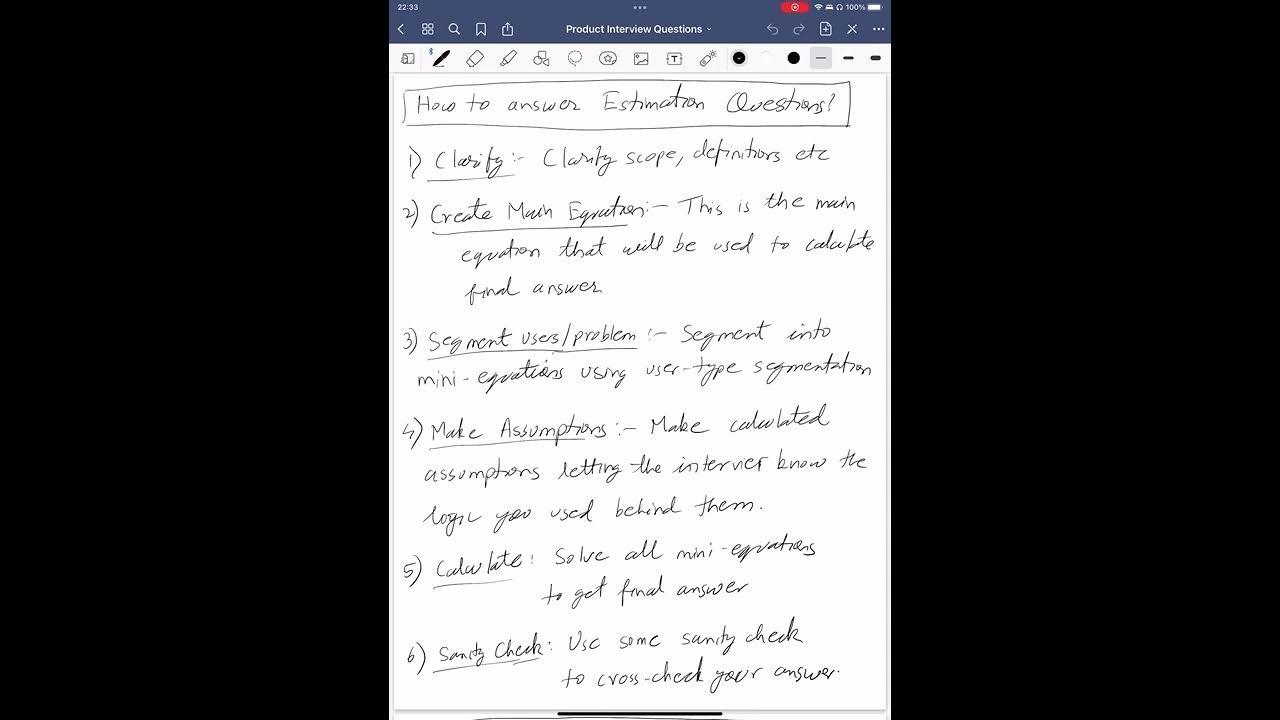 22:33
100%
Product Interview Questions
How to answer Estimation Questions?
1) Clarify :- Clarify scope, definitions etc
2) Create Main Equation :- This is the main
equation that will be used to calculate
final answer.
3) Segment users/problem :- Segment into
mini-equations using user-type segmentation
4) Make Assumptions :- Make calculated
assumptions letting the interver know the
logic you used behind them.
5) Calculate : Solve all mini-equations
to get final answer
6) Sanity Check : Use some sanity check
to cross-check your answer.